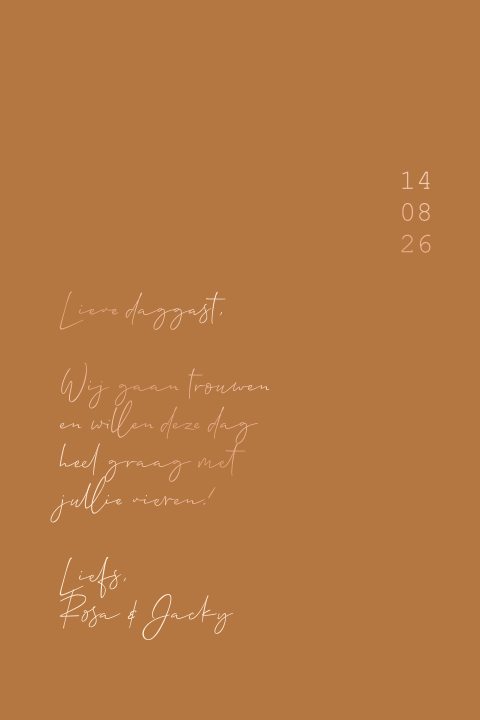 14
08
26
Lieve daggast,
Wij gaan trouwen
en willen deze dag
heel graag met
jullie vieren!
Liefs,
Rosa & Jacky